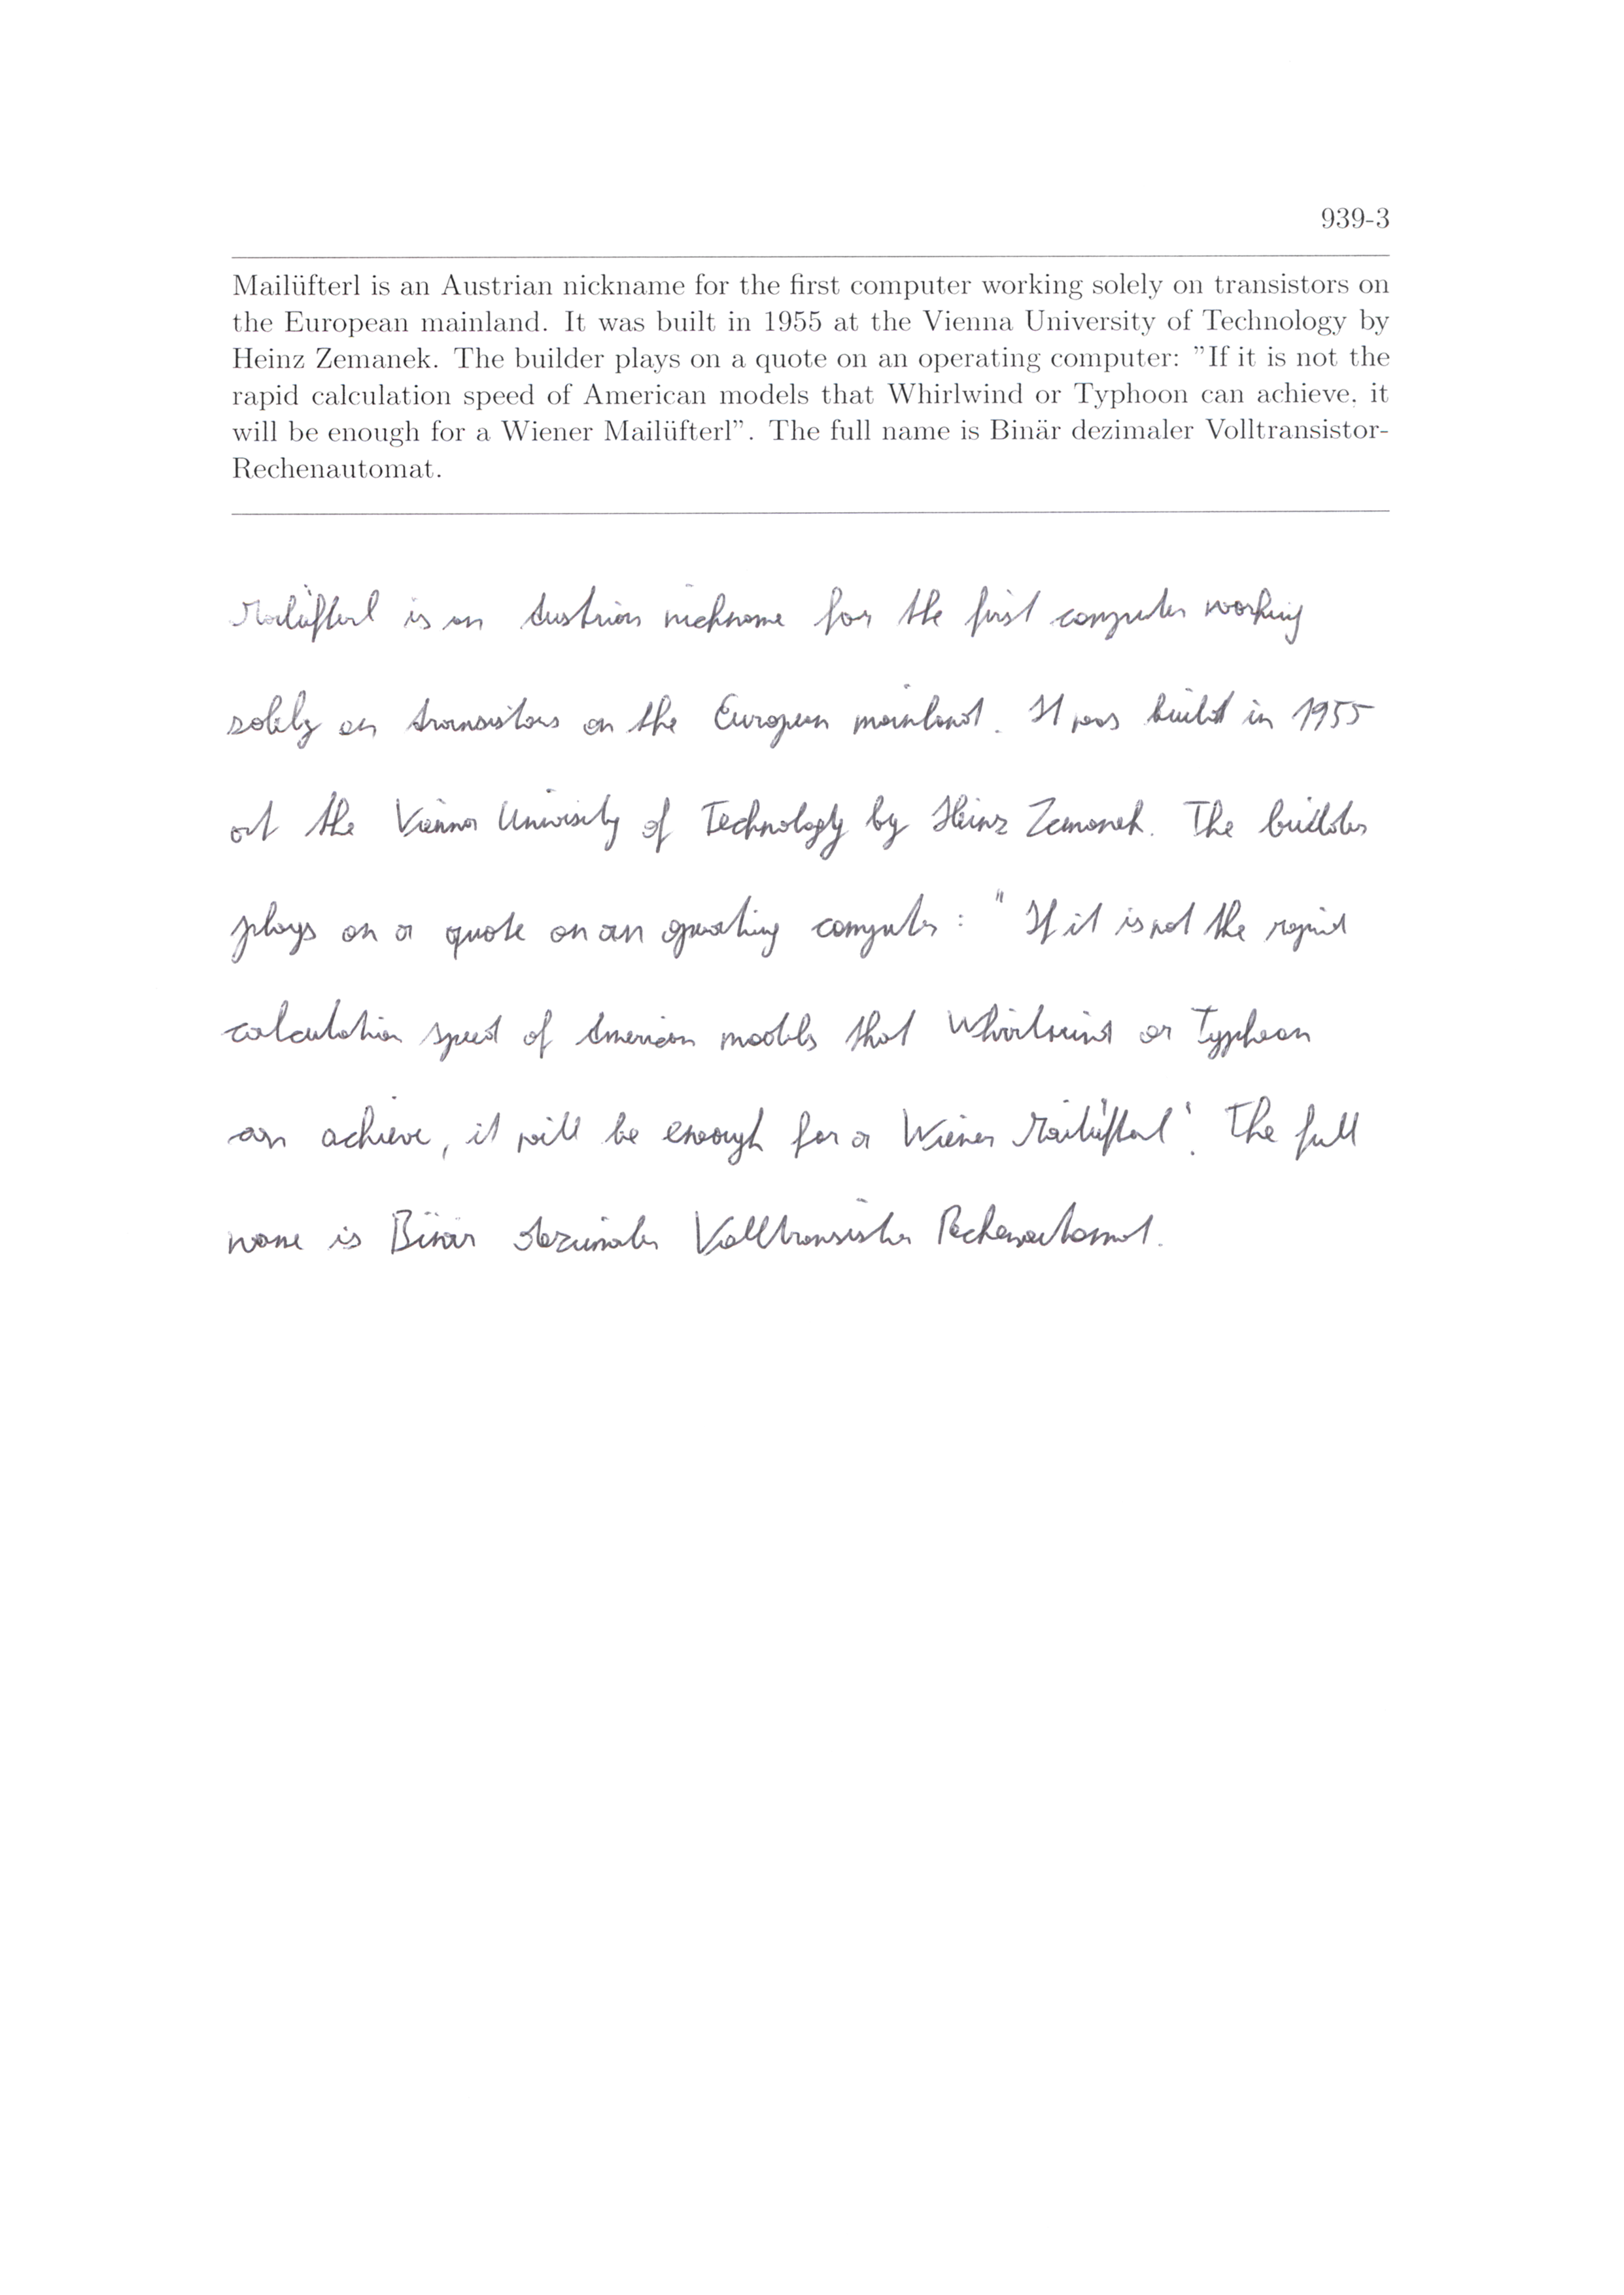 939-3
Mailüfterl is an Austrian nickname for the first computer working solely on transistors on
the European mainland. It was built in 1955 at the Vienna University of Technology by
Heinz Zemanek. The builder plays on a quote on an operating computer: ”If it is not the
rapid calculation speed of American models that Whirlwind or Typhoon can achieve, it
will be enough for a Wiener Mailüfterl”. The full name is Binär dezimaler Volltransistor-
Rechenautomat.
Mailüfterl is an Austrian nickname for the first computer working
solely on transistors on the European mainland. It was build in 1955
at the Vienna University of Technology by Heinz Zemanek. The builder
plays on a quote on an operating computer: "If it is not the rapid
calculation speed of American models that Whirlwind or Typhoon
can achieve, it will be enough for a Wiener Mailüfterl". The full
name is Binär dezimaler Volltransistor Rechenautomat.